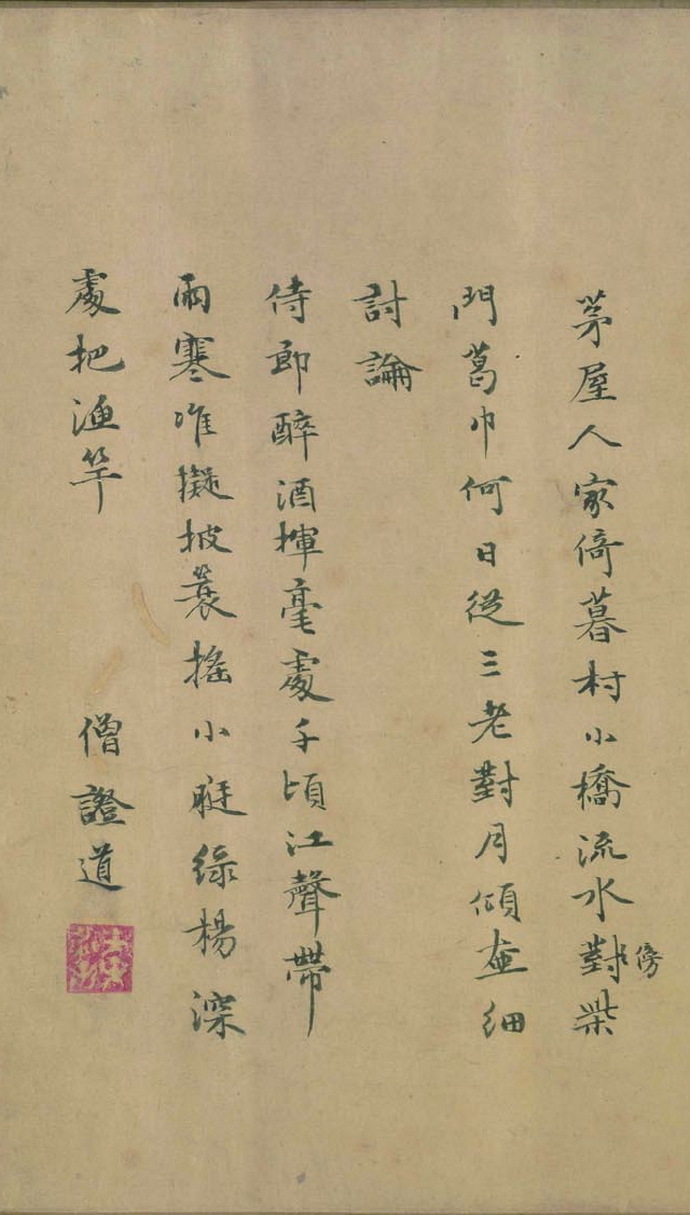 茅屋人家倚暮村小橋流水對傍柴
門葛巾何日從三老對月傾壺細
討論
侍郎醉酒揮毫處千頃江聲帶
雨寒唯擬披蓑搖小艇綠楊深
處把漁竿
僧證道